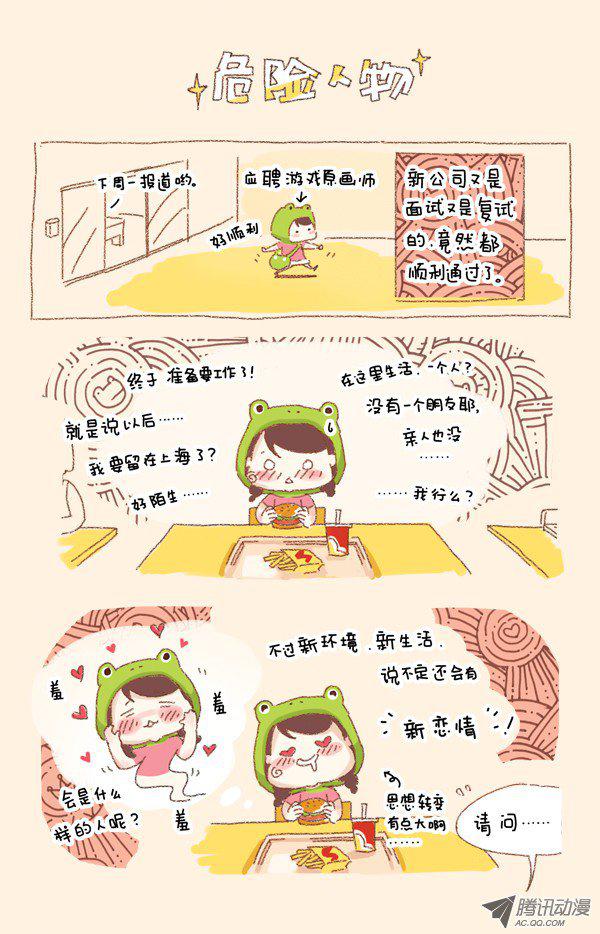 危险人物
下周一报道哟。
应聘游戏原画师
好顺利
新公司又是
面试又是复试
的、竟然都
顺利通过了。
终于 准备要工作了!
就是说以后……
我要留在上海了?
好陌生……
在这里生活、一个人?
没有一个朋友耶,
亲人也没
……
……我行么?
不过新环境、新生活、
说不定还会有
新恋情!
羞
羞
羞
会是什么
样的人呢?
思想转变
有点大啊
……
请问……
腾讯动漫
AC.QQ.COM